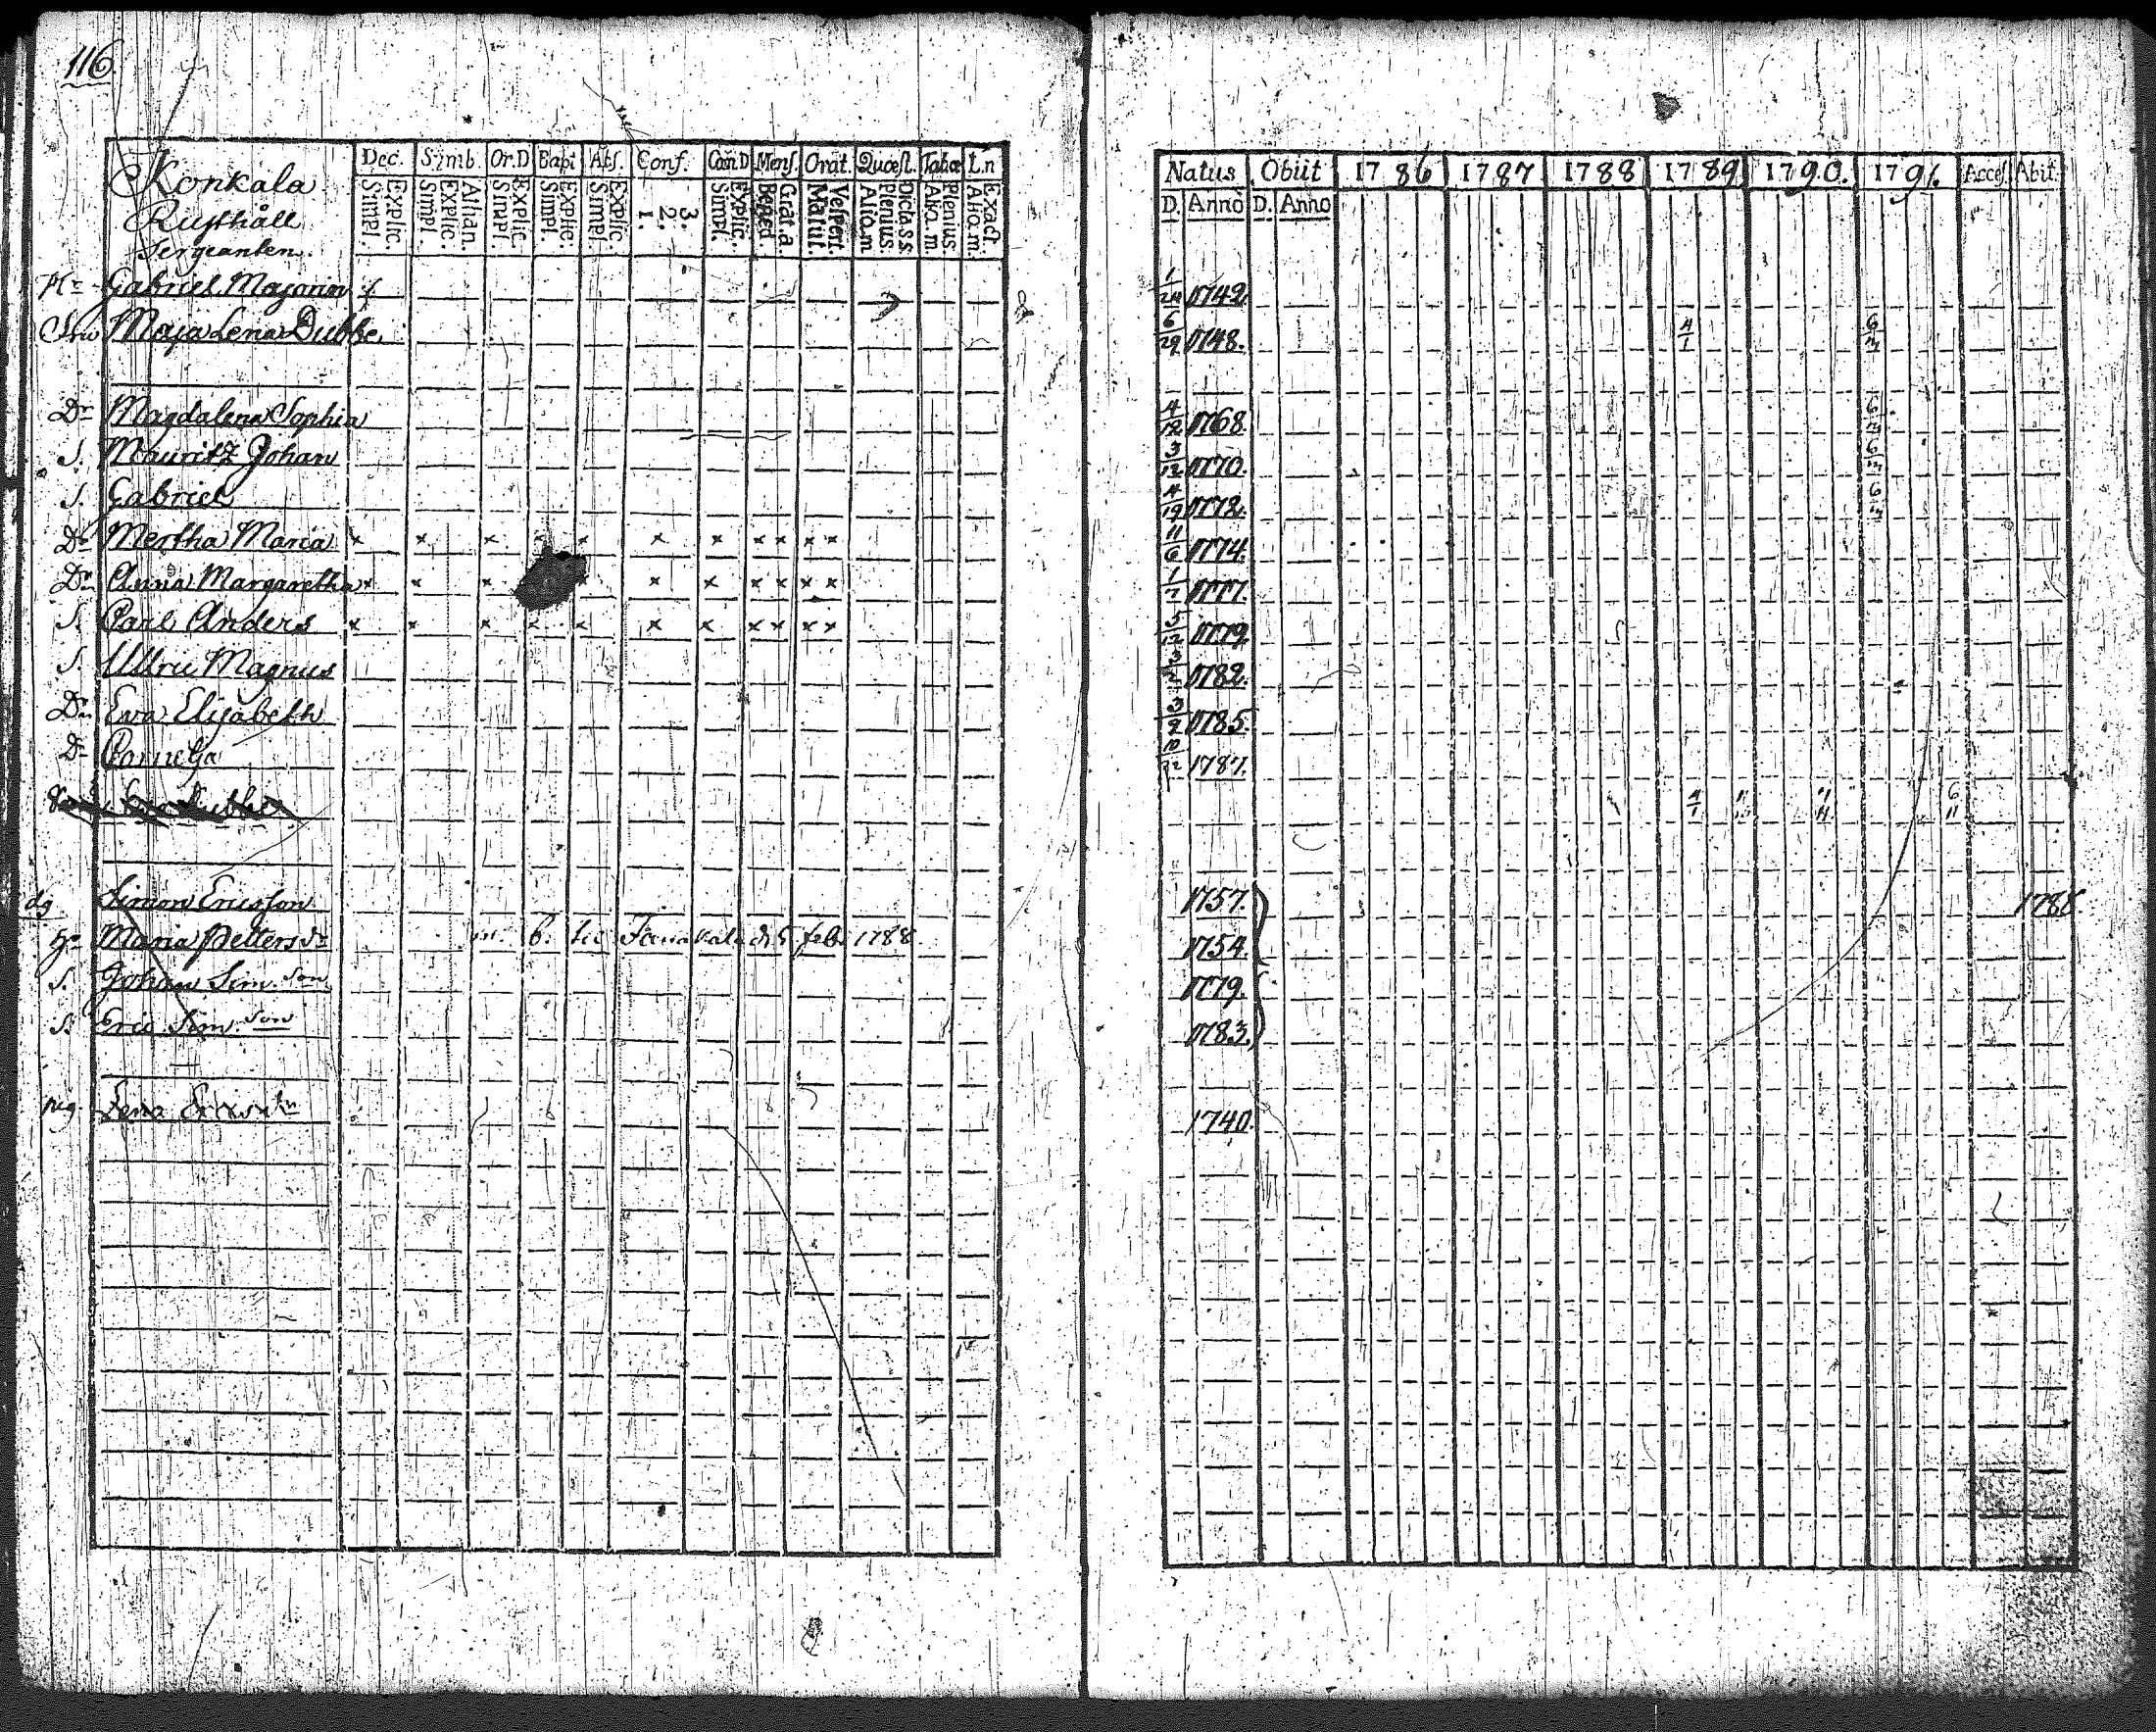 116.
Dec. Simb. Or.D Bapt Abs. Conf. Cœn.D Mens. Orat. Quœst. Tabœ L.n
Simpl. Explic. Simpl. Explic. Athan. Simpl. Explic. Simpl. Explic. Simpl. Explic. 1. 2. 3. Simpl. Explic. Bened. Grat.a. Matut. Vespert. Alio.m Plenius. Dicta.s.s Alio.m. Plenius. Alio.m. Exact.
Natus Obiit 1786 1787 1788 1789. 1790. 1791. Acces. Abit.
D. Anno D. Anno
Konkala
Rusthåll
Sergeanten.
Hr Gabriel Majorin 1/24 1742.
Fru Maja Lena Dubbe. 6/29 1748. 4/1 6/
Dr Magdalena Sophia 4/12 1768. 6/
S. Mauritz Johan 3/12 1770. 6/
S. Gabriel 4/19 1772. 6/
Dr Mertha Maria x x x x x x x x x x x 11/6 1774.
Dr Anna Margaretha x x x x x x x x x x 1/7 1777.
S. Carl Anders x x x x x x x x x x x 5/12 1779.
S. Ulric Magnus 1782.
Dr. Eva Elisabeth 3/9 1785.
Dr Cornelja 10/22 1787.
4/1 6/11
dg Simon Ericsson 1757. 1788
Hu Maria Pettersdr 5 febr 1788. 1754.
S. Johan Sim. son 1779.
S. Eric Sim. son 1783.
pig. Lena Ericsdr 1740.